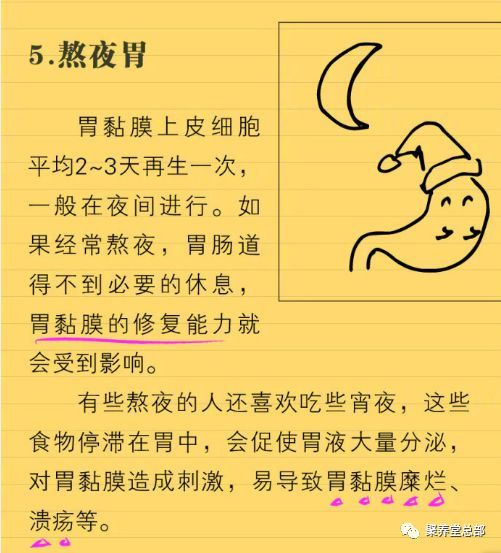 5.熬夜胃
胃黏膜上皮细胞
平均2~3天再生一次，
一般在夜间进行。如
果经常熬夜，胃肠道
得不到必要的休息，
胃黏膜的修复能力就
会受到影响。
有些熬夜的人还喜欢吃些宵夜，这些
食物停滞在胃中，会促使胃液大量分泌，
对胃黏膜造成刺激，易导致胃黏膜糜烂、
溃疡等。
聚养堂总部